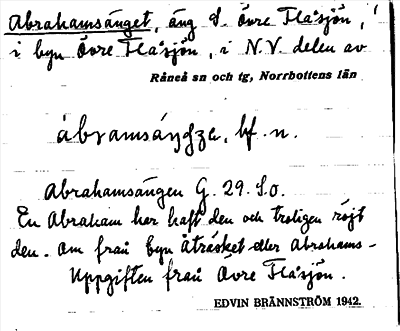 Abrahamsänget, äng S. Övre Flåsjön,
i byn Övre Flåsjön, i N.V. delen av
Råneå sn och tg, Norrbottens län
ábramsáŋgʒe, bf. n.
Abrahamsängen G. 29. S.o.
En Abraham har haft den och troligen röjt
den. Om från byn Åträsket eller Abrahams-
Uppgiften från Övre Flåsjön.
EDVIN BRÄNNSTRÖM 1942.